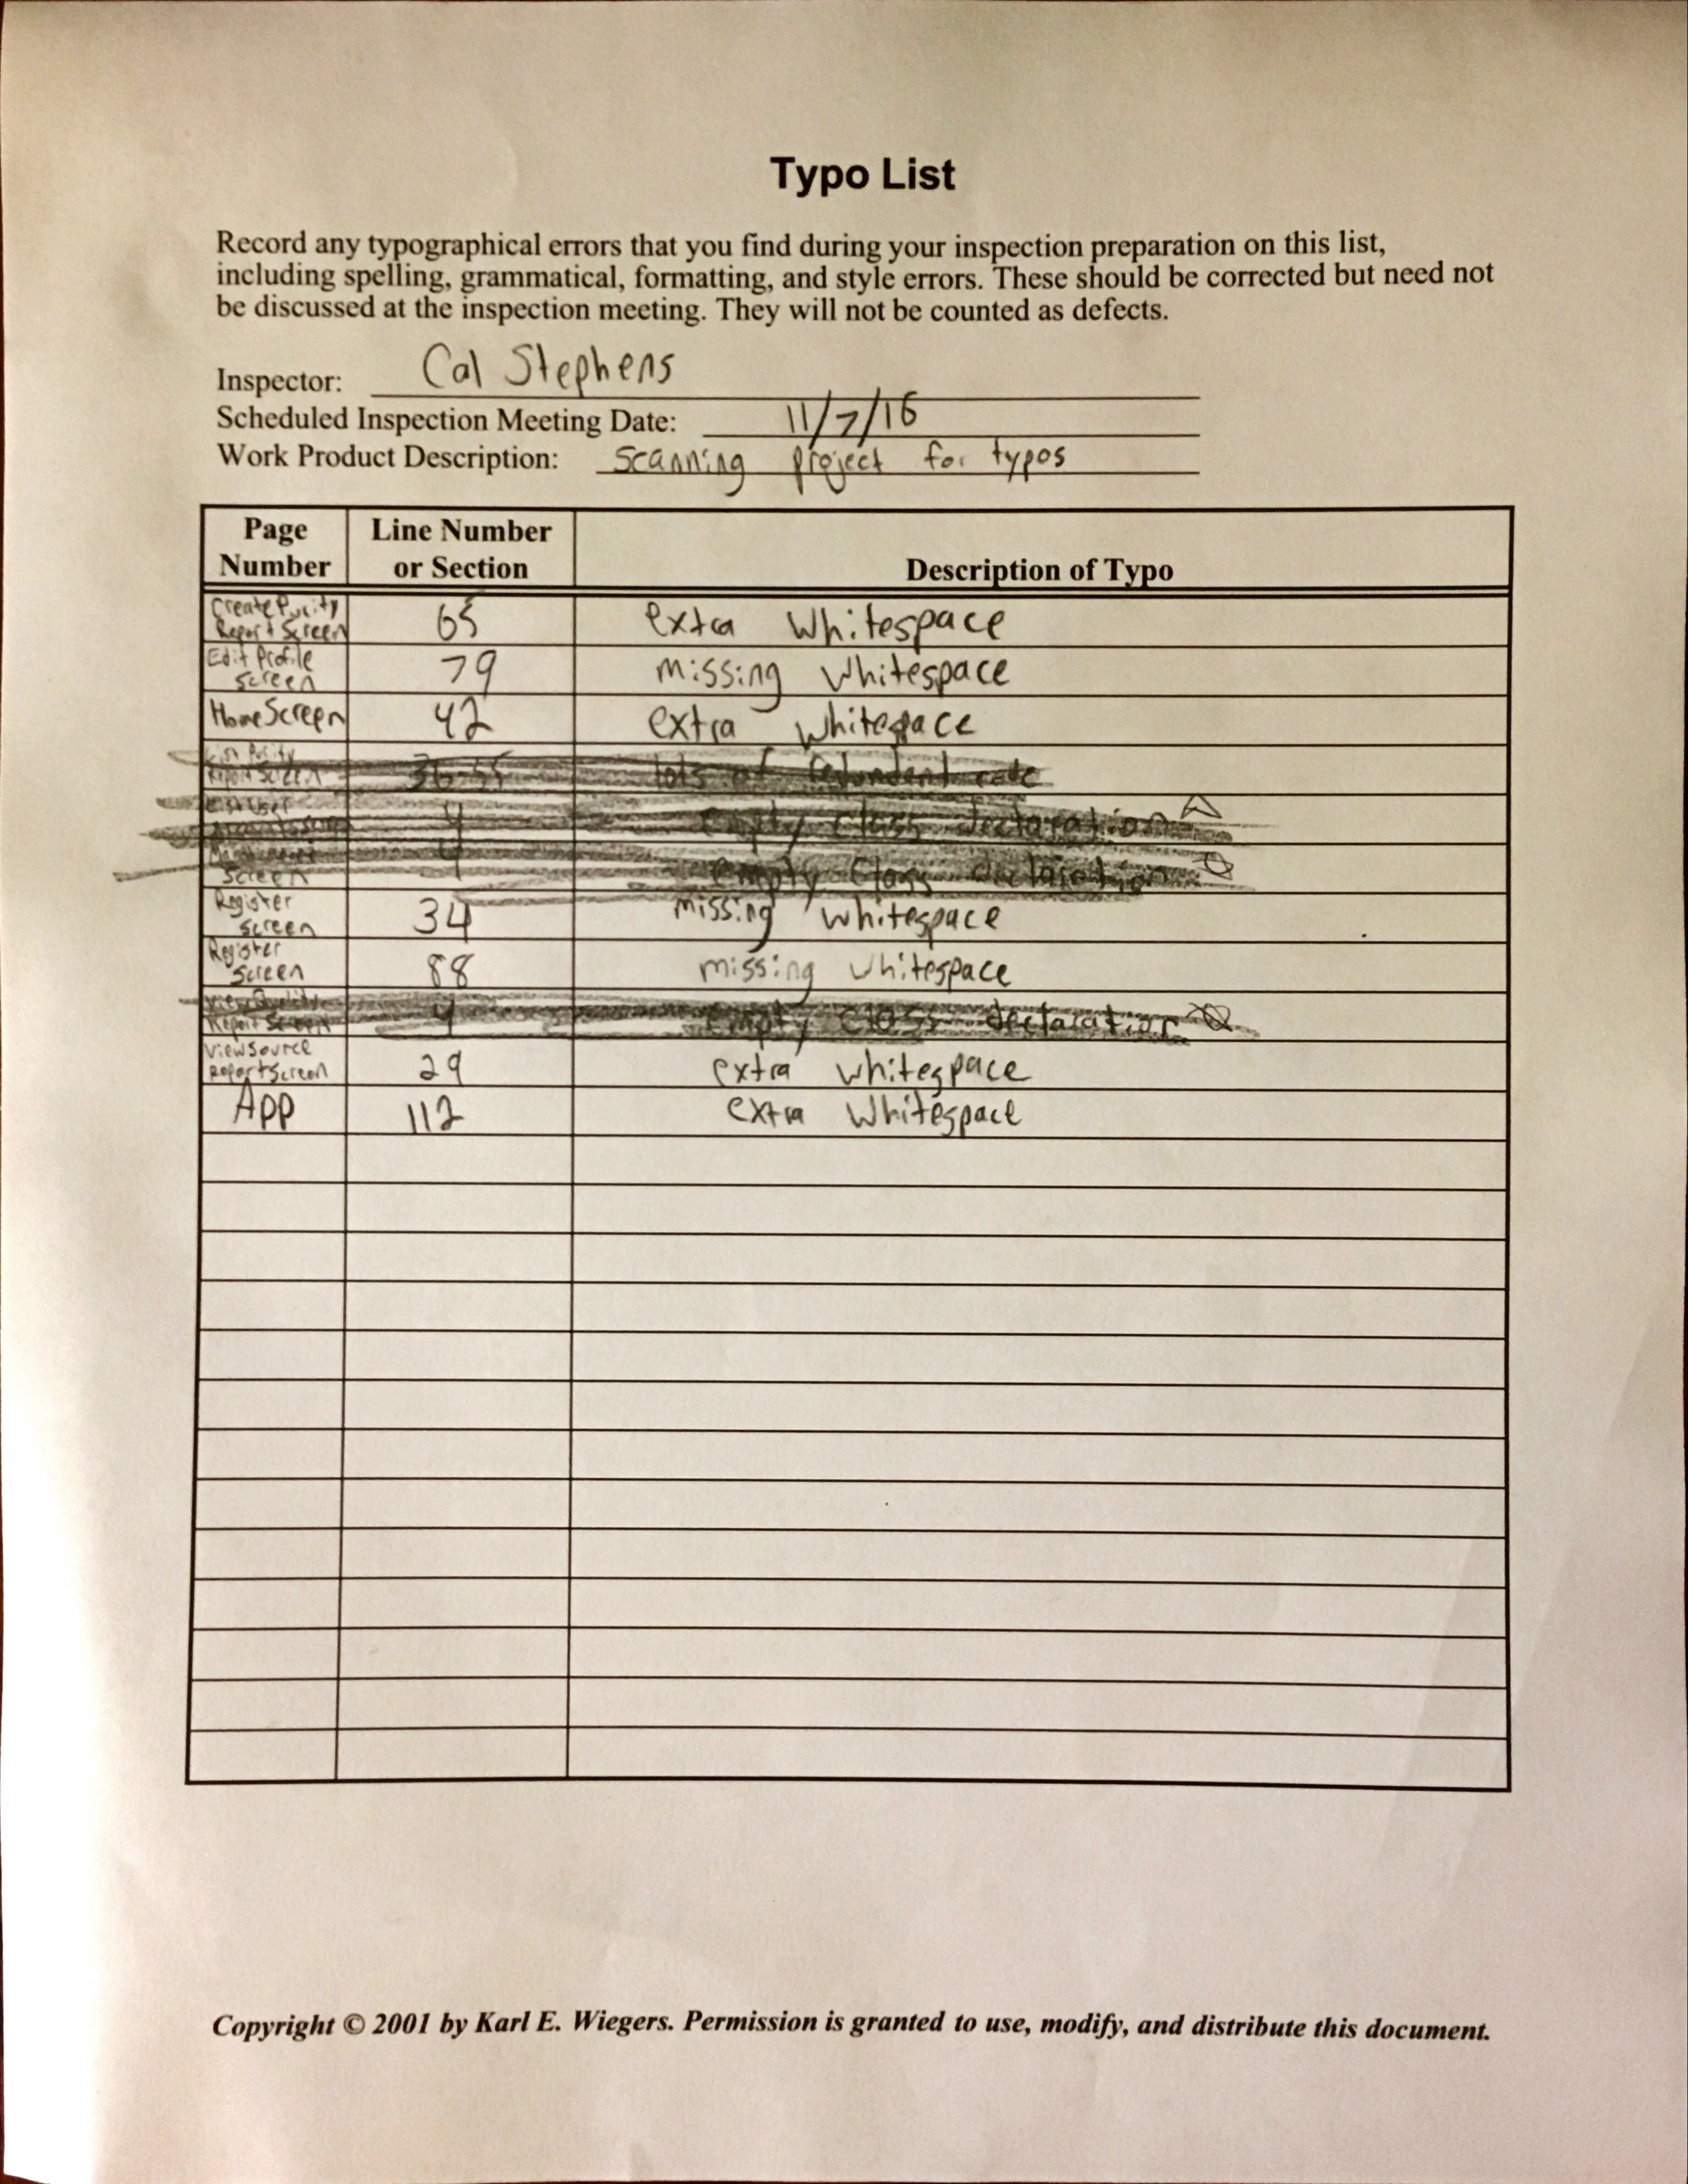 Typo List
Record any typographical errors that you find during your inspection preparation on this list,
including spelling, grammatical, formatting, and style errors. These should be corrected but need not
be discussed at the inspection meeting. They will not be counted as defects.
Inspector: Cal Stephens
Scheduled Inspection Meeting Date: 11/7/16
Work Product Description: Scanning project for typos
Page Number Line Number or Section Description of Typo
Create Purity Report Screen 65 extra whitespace
Edit Profile Screen 79 missing whitespace
HomeScreen 42 extra whitespace
Report Screen 36-55 lots of redundent code
4 Empty Class declaration
Screen 4 empty Class declaration
Register Screen 34 missing whitespace
Register Screen 88 missing whitespace
View Quality Report Screen 4 empty class declaration
View Source Report Screen 29 extra whitespace
App 112 extra whitespace
Copyright © 2001 by Karl E. Wiegers. Permission is granted to use, modify, and distribute this document.